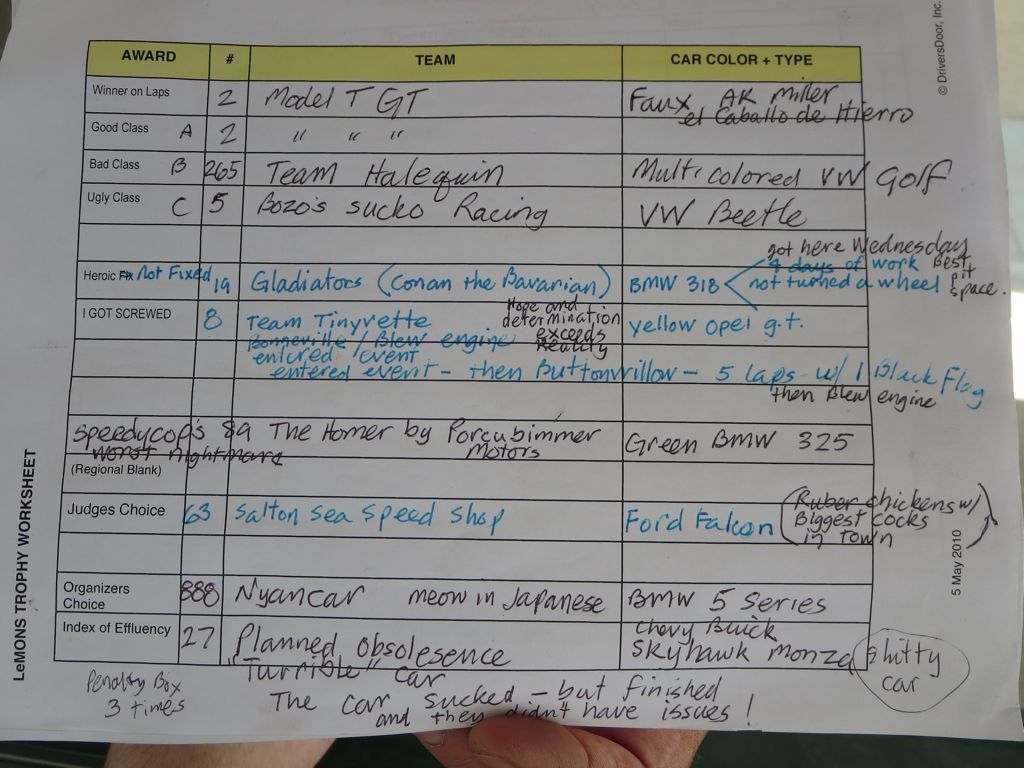 © DriversDoor, Inc.
AWARD # TEAM CAR COLOR + TYPE
Winner on Laps 2 Model T GT Faux AK Miller
el Caballo de Hierro
Good Class A 2 " " "
Bad Class B 265 Team Halequin Multicolored VW golf
Ugly Class C 5 Bozo's sucko Racing VW Beetle
got here Wednesday
4 days of work Best
pit
Heroic Fix not Fixed 19 Gladiators (Conan the Bavarian) BMW 318 not turned a wheel space.
I GOT SCREWED 8 Team Tinyvette Hope and
determination
exceeds
Reality
yellow opel g.t.
Bonneville / Blew engine
entered event
entered event - then Buttonwillow - 5 laps w/ 1 Black Flag
then Blew engine
Speedycop's 89 The Homer by Porcubimmer
Motors
Green BMW 325
worst nightmare
(Regional Blank)
Judges Choice 63 Salton Sea Speed Shop Ford Falcon (Ruber chickens w/
Biggest cocks
in Town)
Organizers
Choice
888 Nyancar meow in Japanese BMW 5 Series
Index of Effluency 27 Planned Obsolesence Chevy Buick
Skyhawk Monza
shitty
car
"Turrible" car
Penalty Box
3 times
The car sucked - but finished
and they didn't have issues!
LeMONS TROPHY WORKSHEET
5 May 2010